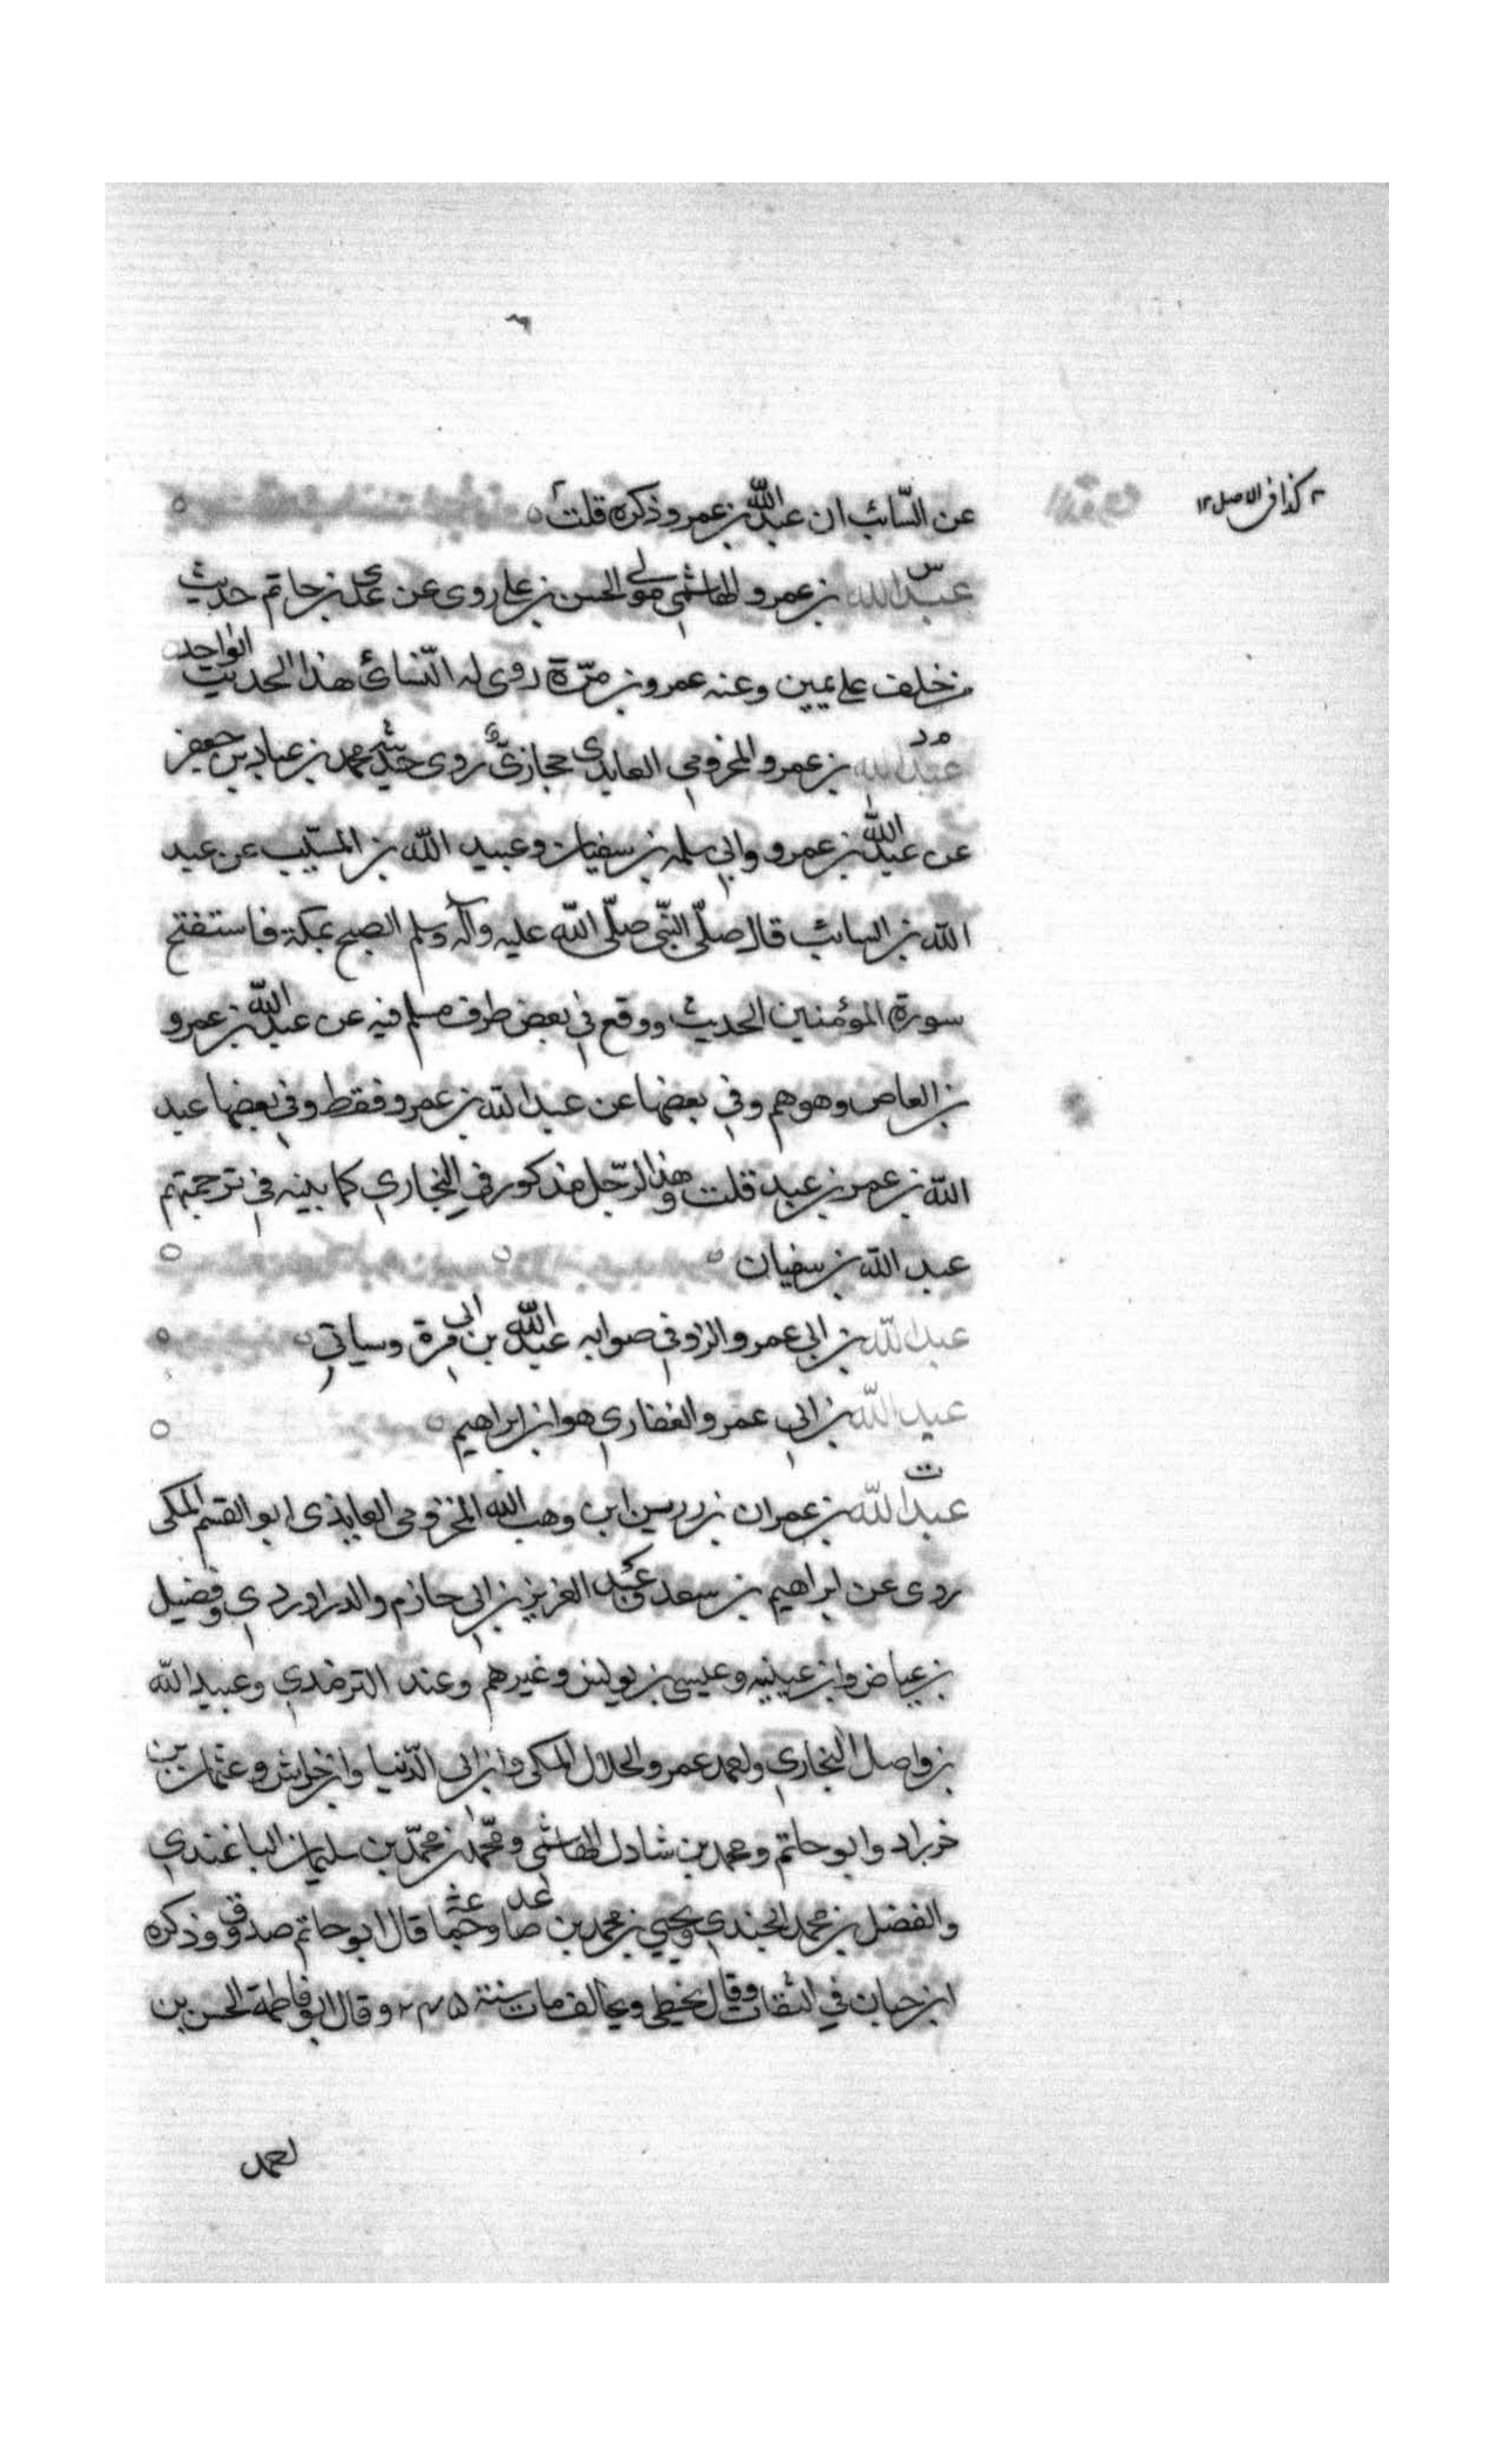 عن السّائب ان عبد الله بن عمرو ذكره قلت
كذا فى الاصل ١٢
س
عبد الله بن عمرو الهاشمي مولى الحسن بن على روى عن عدي بن حاتم حديث
من خلف على يمين وعنه عمرو بن مرّة روى له النّسائى هذا الحديث الواحد
م د
عبد الله بن عمرو المخزومي العابدى حجازىّ روى حديثه محمد بن عباد بن جعفر
عن عبد الله بن عمرو وابي سلمه بن سفيان وعبيد الله بن المسيّب عن عبد
الله بن السائب قال صلّى النّبى صلّى الله عليه وآله وسلم الصبح بمكة فاستفتح
سورة المؤمنين الحديث ووقع في بعض طرف مسلم فيه عن عبد الله بن عمرو
بن العاص وهو وهم وفي بعضها عن عبد الله بن عمرو فقط وفي بعضها عبد
الله بن عمرو بن عبد قلت وهذا الرّجل مذكور في البخاري كما بينه في ترجمتهم
عبد الله بن سفيان
عبد الله بن ابي عمرو الزوفي صوابه عبد الله بن ابى مرة وسياتي
عبد الله بن ابي عمرو الغفاري هو ابن ابراهيم
ت
عبد الله بن عمران بن رزين ابن وهب الله المخزومى العابذى ابو القسم المكى
روى عن ابراهيم بن سعد وعبد العزيز بن ابي حازم والدراوردي وفضيل
بن عياض وابن عيينه وعيسى بن يونس وغيرهم وعند الترمذي وعبيد الله
بن واصل البخاري واحمد عمرو الخلال المكى وابن ابى الدّنيا وابن خراش وعثمان بن
خرزاد وابو حاتم ومحمد بن شادل الهاشمي ومحمّد بن محمّد بن سليمان الباغندي
والفضل بن محمد الجندي ويحيي بن محمد بن صاعد وجماعة قال ابو حاتم صدوق وذكره
ابن حبان في الثقات وقال يخطى ويخالف مات سنة ٢٤٥ وقال ابو فاطمة الحسن بن
احمد